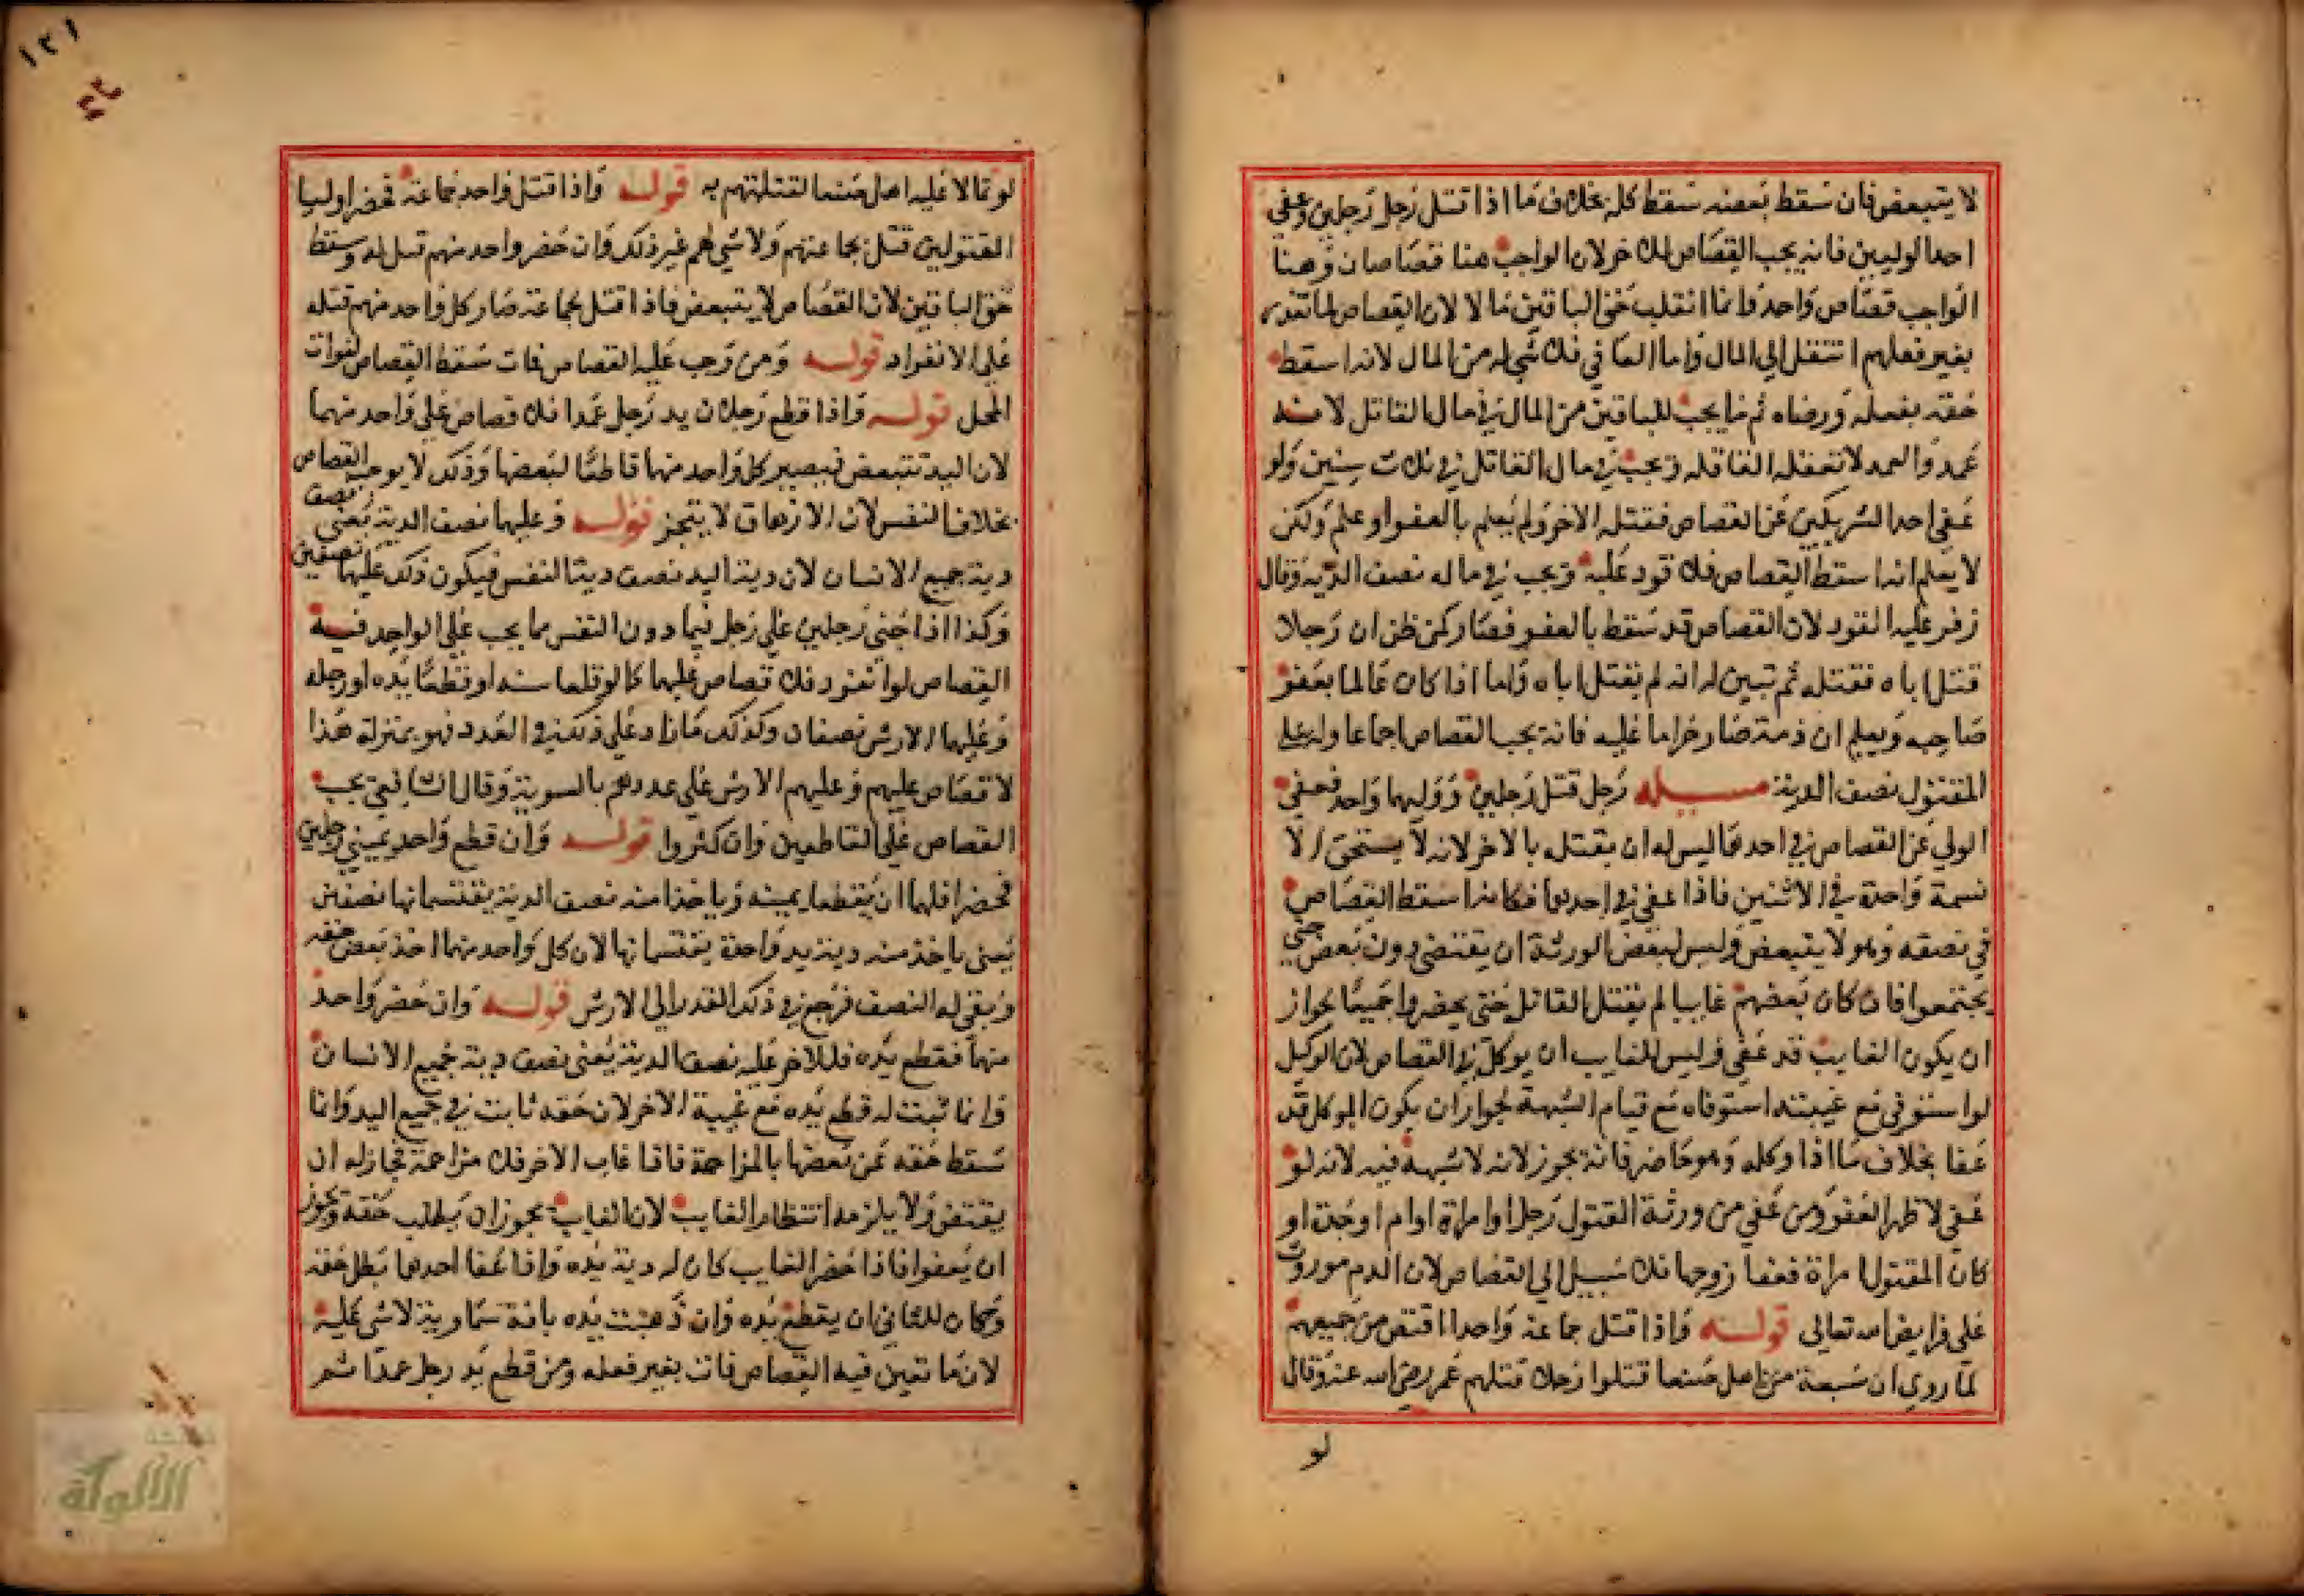 لا يتبعض فان سقط بعضه سقط كله بخلاف ما اذا قتل رجل رجلين وعفي
احدا لوليين فانه يجب القصاص للاخر لان الواجب هنا قصاصان وهنا
الواجب قصاص واحد وانما انقلب حق الباقين مالا لان القصاص لما تعذر
بغير فعلهم انتقل الي المال واما العافي فلا شي له من المال لانه اسقط
حقه بفعله ورضاه ثم ما يجب للباقين من المال في مال القاتل لانه
عمد والعمد لا تعقله العاقله ويجب في مال القاتل في ثلاث سنين ولو
عفي احد الشريكين عن القصاص فقتله الاخر ولم يعلم بالعفو او علم ولكن
لا يعلم انه اسقط القصاص فلا قود عليه ويجب في ماله نصف الدية وقال
زفر عليه القود لان القصاص قد سقط بالعفو فصار كمن ظن ان رجلا
قتل اباه فقتله ثم تبين له انه لم يقتل اباه واما اذا كان عالما بعفو
صاحبه ويعلم ان دمه صار حراما عليه فانه يجب القصاص اجماعا وله علي
المقتول نصف الدية مسيله رجل قتل رجلين ووليهما واحد فعفي
الولي عن القصاص في احدهما ليس له ان يقتله بالاخر لانه لا يستحق الا
نسمة واحدة في الاثنين فاذا عفي في احدهما فكانما اسقط القصاص
في نصفه وهو لا يتبعض وليس لبعض الورثة ان يقتض دون بعض حتي
يجتمعوا فان كان بعضهم غايبا لم يقتل القاتل حتي يحضروا جميعا لجواز
ان يكون الغايب قد عفي وليس للغايب ان يوكل في القصاص لان الوكيل
لو استوفي مع غيبته استوفاه مع قيام الشبهة لجواز ان يكون الموكل قد
عفا بخلاف ما اذا وكله وهو حاضر فانه يجوز لانه لا شبهة فيه لانه لو
عفي لاظهر العفو ومن عفي من ورثة المقتول رجل او امراة او ام او جدة او
كان المقتول امراة فعفا زوجها فلا سبيل الي القصاص لان الدم موروث
علي فرايض الله تعالي قوله واذا قتل جماعة واحدا اقتص من جميعهم
لما روي ان سبعة من اهل صنعا قتلوا رجلا قتلهم عمر رضي الله عنه وقال
لو
١٢١
لو تمالا عليه اهل صنعا لقتلتهم به قوله واذا قتل واحد جماعة فحضر اوليا
المقتولين قتل بجماعتهم ولا شي لهم غير ذلك وان حضر واحد منهم قتل له وسقط
حق الباقين لان القصاص لا يتبعض فاذا قتل بجماعة صار كل واحد منهم قتله
علي الانفراد قوله ومن وجب عليه القصاص فمات سقط القصاص لفوات
المحل قوله واذا قطع رجلان يد رجل عمدا فلا قصاص علي واحد منهما
لان اليد تتبعض فيصير كل واحد منهما قاطعا لبعضها وذلك لا يوجب القصاص
بخلاف النفس لان الازهاق لا يتجز قوله وعليهما نصف الدية يعني نصف
دية جميع الانسان لان دية اليد نصف دية النفس فيكون ذلك عليهما نصفين
وكذا اذا جني رجلين علي رجل فيما دون النفس مما يجب علي الواحد فيه
القصاص لو انفرد فلا قصاص عليهما كما لو قلعا سنه او قطعا يده او رجله
وعليهما الارش نصفان وكذلك ما زاد علي ذلك في العدد فهو بمنزلة هذا
لا قصاص عليهم وعليهم الارش علي عددهم بالسوية وقال الشافعي يجب
القصاص علي القاطعين وان كثروا قوله وان قطع واحد يميني رجلين
فحضرا فلهما ان يقطعا يمينه وياخذا منه نصف الدية يقتسمانها نصفين
يعني ياخذ منه دية يد واحدة يقتسمانها لان كل واحد منهما اخذ بعض حقه
وبقي له النصف فرجع في ذلك القدر الي الارش قوله وان حضر واحد
منهما فقطع يده فللاخر عليه نصف الدية يعني نصف دية جميع الانسان
وانما ثبت له قطع يده مع غيبة الاخر لان حقه ثابت في جميع اليد وانما
سقط حقه عن بعضها بالمزاحمة فاذا غاب الاخر فلا مزاحمة فجاز له ان
يقتض ولا يلزمه انتظار الغايب لان الغايب يجوز ان يطلب حقه ويجوز
ان يعفوا فاذا حضر الغايب كان له دية يده واذا عفا احدهما بطل حقه
وكان للثاني ان يقطع يده وان ذهبت يده بافة سماوية لا شي عليه
لان ما تعين فيه القصاص فات بغير فعله ومن قطع يد رجل عمدا ثم
الألوكة